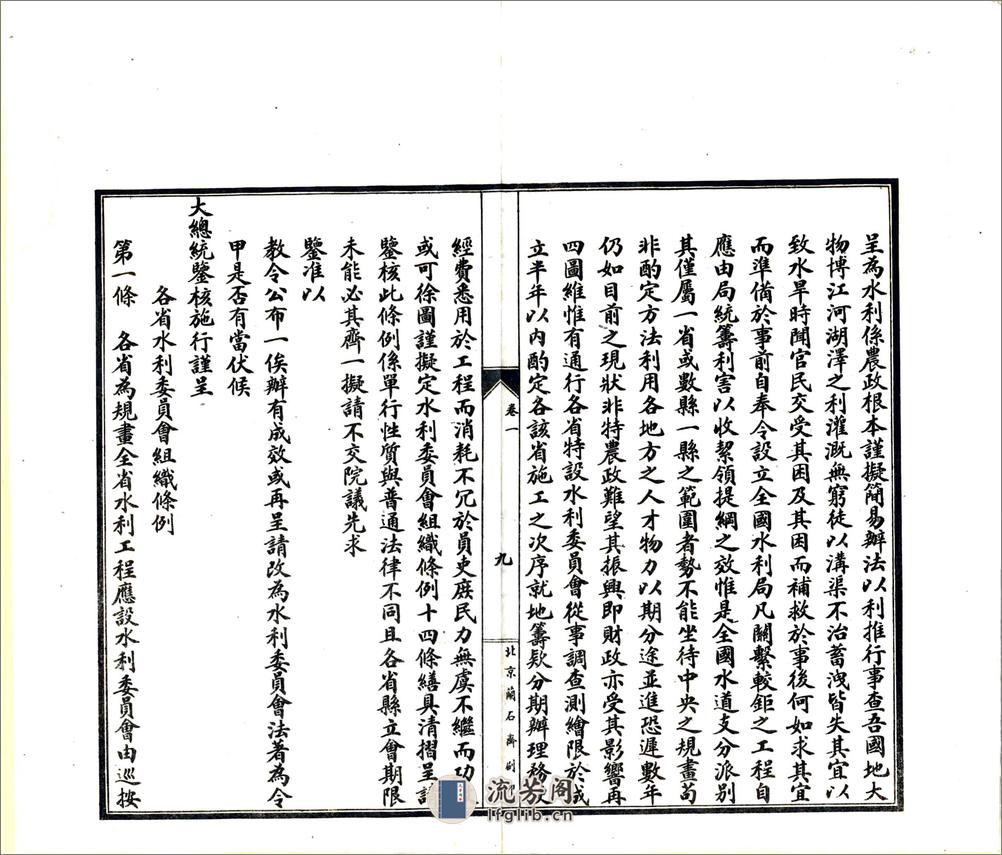 呈為水利係農政根本謹擬簡易辦法以利推行事查吾國地大
物博江河湖澤之利灌溉無窮徒以溝渠不治蓄洩皆失其宜以
致水旱時聞官民交受其困及其困而補救於事後何如求其宜
而準備於事前自奉令設立全國水利局凡關繫較鉅之工程自
應由局統籌利害以收絜領提綱之效惟是全國水道支分派別
其僅屬一省或數縣一縣之範圍者勢不能坐待中央之規畫苟
非酌定方法利用各地方之人才物力以期分途並進恐遲數年
仍如目前之現狀非特農政難望其振興即財政亦受其影響再
四圖維惟有通行各省特設水利委員會從事調查測繪限於成
立半年以內酌定各該省施工之次序就地籌欵分期辦理務
卷一
九
北京蘭石齋
經費悉用於工程而消耗不冗於員吏庶民力無虞不繼而功
或可徐圖謹擬定水利委員會組織條例十四條繕具清摺呈
鑒核此條例係單行性質與普通法律不同且各省縣立會期限
未能必其齊一擬請不交院議先求
鑒准以
教令公布一俟辦有成效或再呈請改為水利委員會法著為令
甲是否有當伏候
大總統鑒核施行謹呈
各省水利委員會組織條例
第一條 各省為規畫全省水利工程應設水利委員會由巡按
流芳阁
lfglib.cn